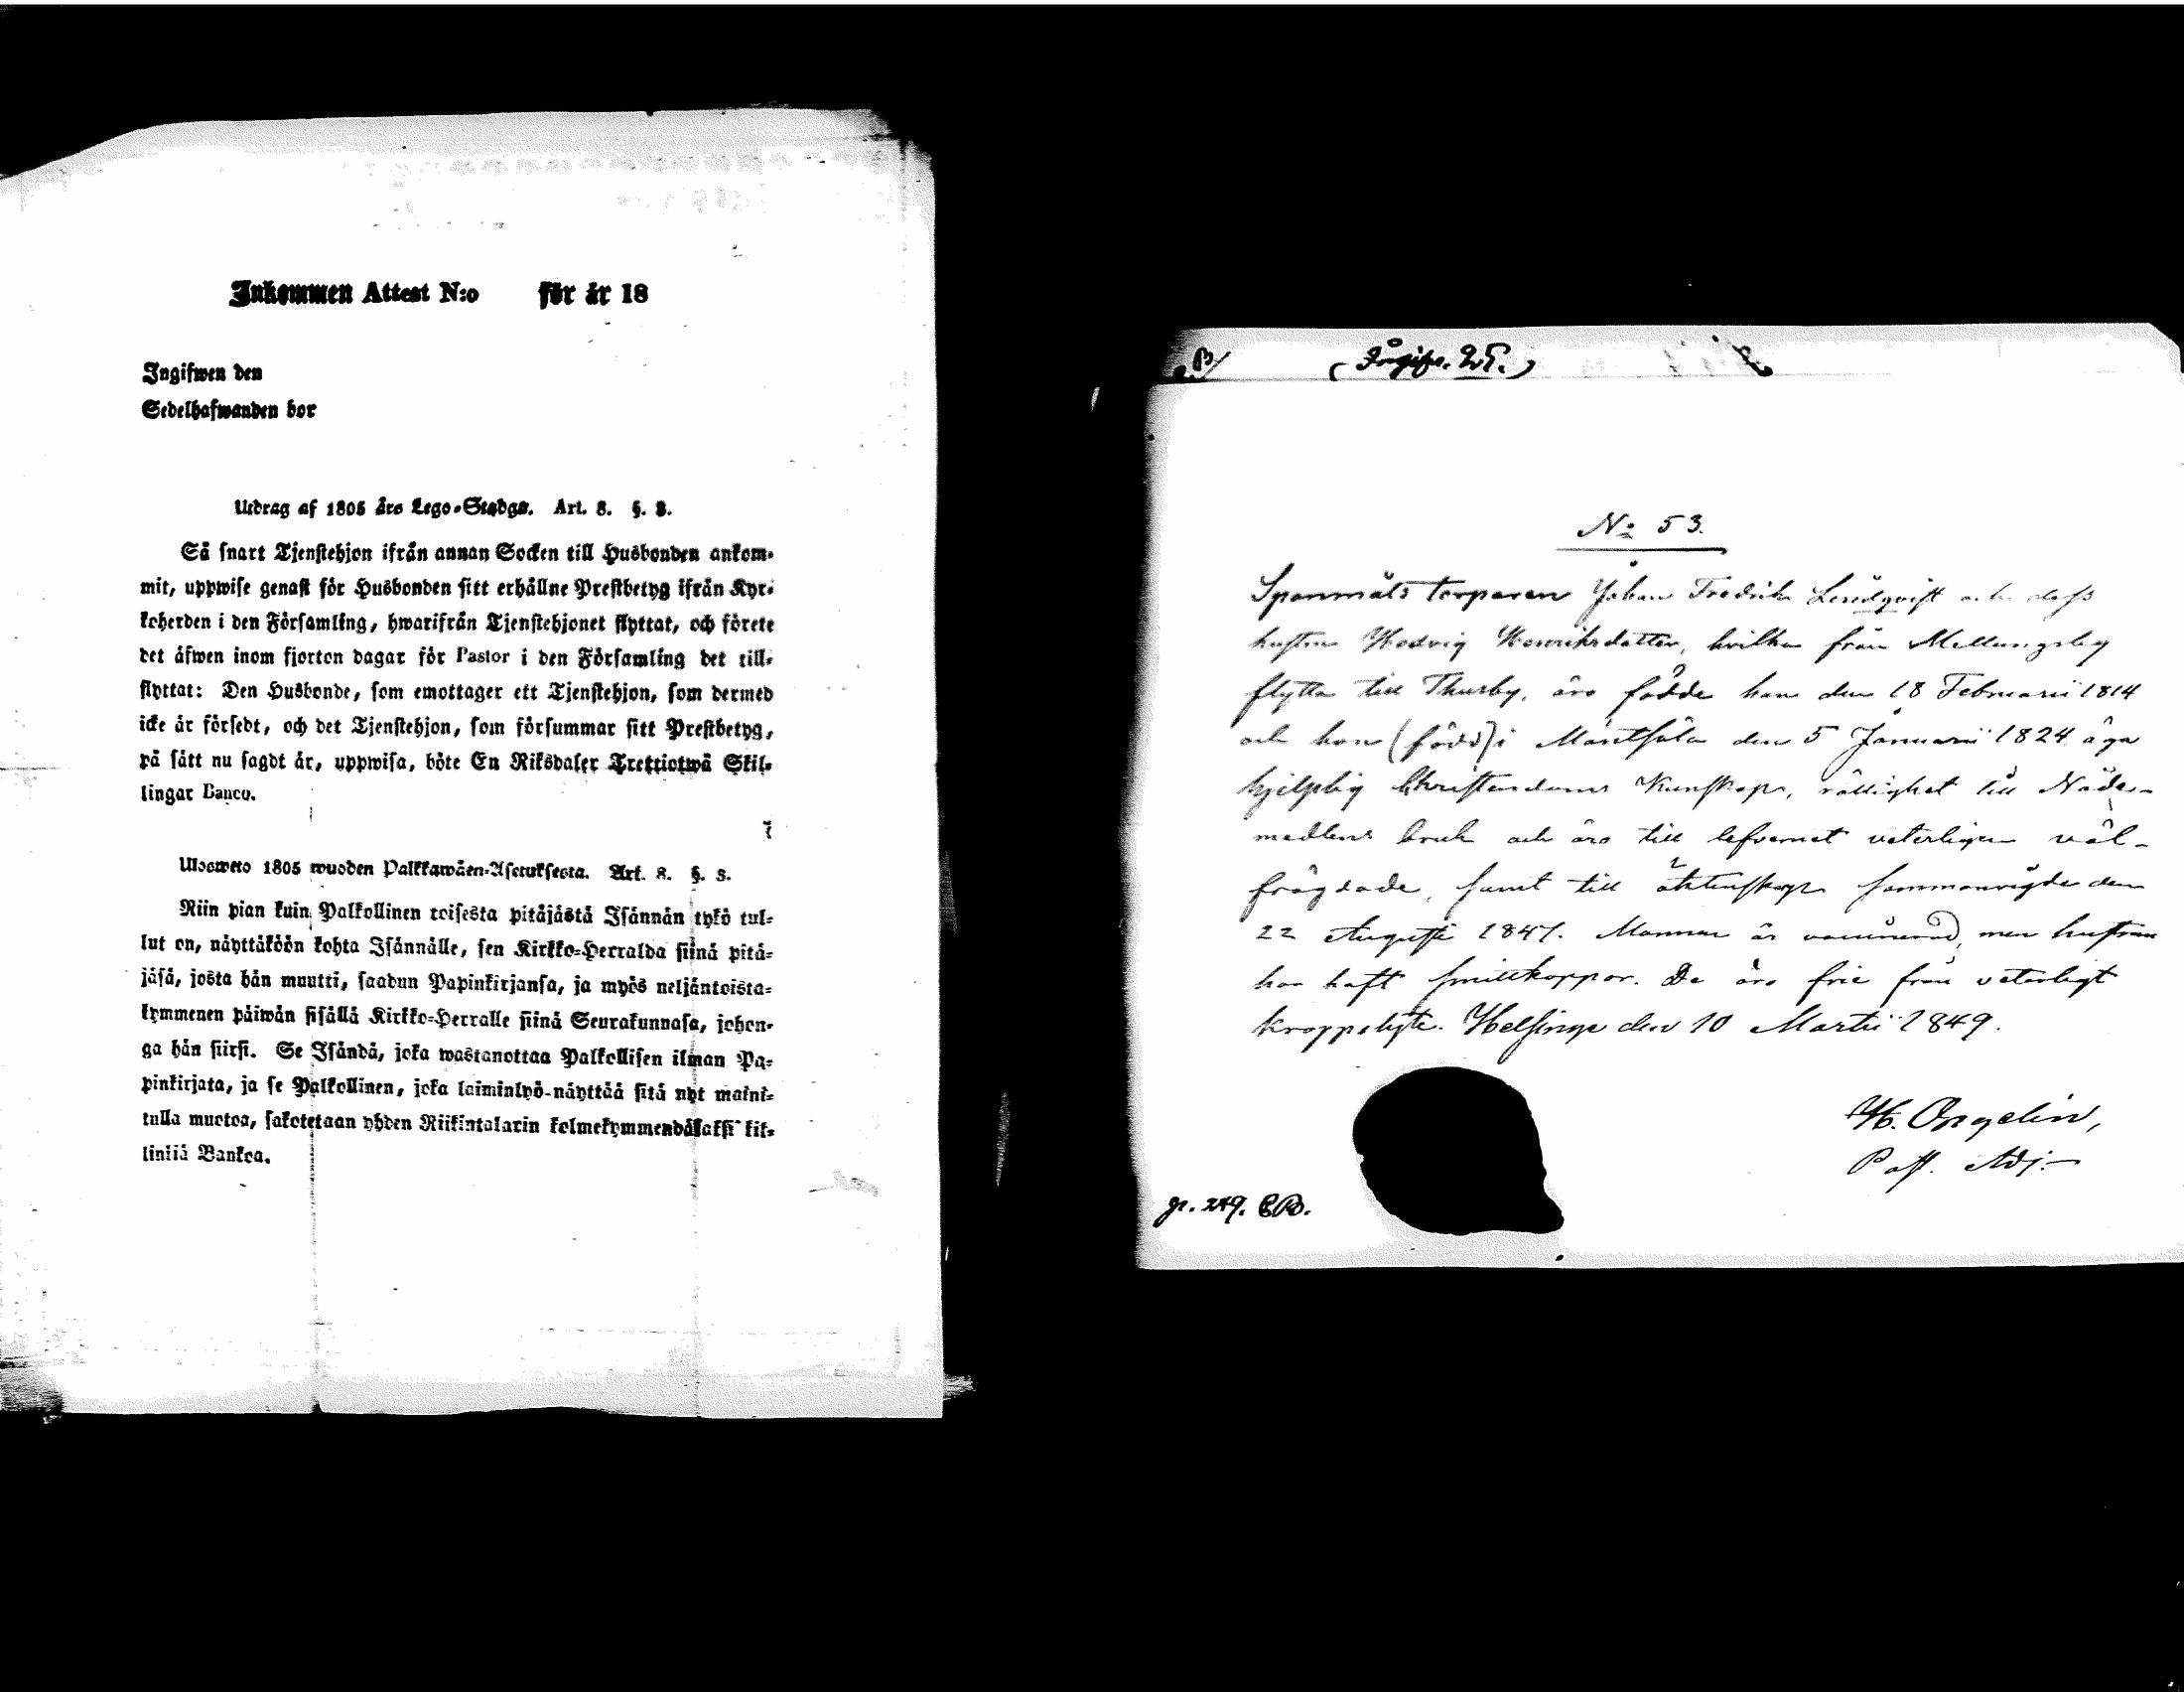 Inkommen Attest N:o för år 18
Ingifwen den
Sedelhafwanden bor
Utdrag af 1805 års Lego-Stadga. Art. 8. §. 3.
Så snart Tjenstehjon ifrån annan Socken till Husbonden ankom-
mit, uppwise genast för Husbonden sitt erhållne Prestbetyg ifrån Kyr-
koherden i den Församling, hwarifrån Tjenstehjonet flyttat, och förete
det äfwen inom fjorton dagar för Pastor i den Församling det till-
flyttat: Den Husbonde, som emottager ett Tjenstehjon, som dermed
icke är försedt, och det Tjenstehjon, som försummar sitt Prestbetyg,
på sätt nu sagdt är, uppwisa, böte En Riksdaler Trettiotwå Skil-
lingar Banco.
Ulosweto 1805 wuoden Palkkawäen-Asetuksesta. Art. 8. §. 3.
Niin pian kuin Palkollinen toisesta pitäjästä Isännän tykö tul-
lut on, näyttäköön kohta Isännälle, sen Kirkko-Herralda siinä pitä-
jäsä, josta hän muutti, saadun Papinkirjansa, ja myös neljäntoista-
kymmenen päiwän sisällä Kirkko-Herralle siinä Seurakunnasa, johon-
ga hän siirsi. Se Isändä, joka wastanottaa Palkollisen ilman Pa-
pinkirjata, ja se Palkollinen, joka laiminlyö näyttää sitä nyt maini-
tulla muotoa, sakotetaan yhden Riikintalarin kolmekymmendäkaksi kil-
linkiä Bankoa.
N:o 53.
Spanmåls torparen Johan Fredrik Lindqvist och dess
hustru Hedvig Henriksdotter, hvilka från Mellungsby
flytta till Thusby, äro födde han den 18 Februarii 1814
och hon (född) i Mäntsälä den 5 Januarii 1824 äga
hjelplig Christendoms Kunskap, rättighet till Nåde-
medlens bruk och äro till lefvernet veterligen väl-
frägdade, samt till äktenskap sammanvigde den
22 Augusti 1847. Mannen är vaccinerad, men hustrun
har haft smittkoppor. De äro frie från veterligt
kroppslyte. Helsinge den 10 Martii 1849.
H. Ongelin,
Past. Adj.